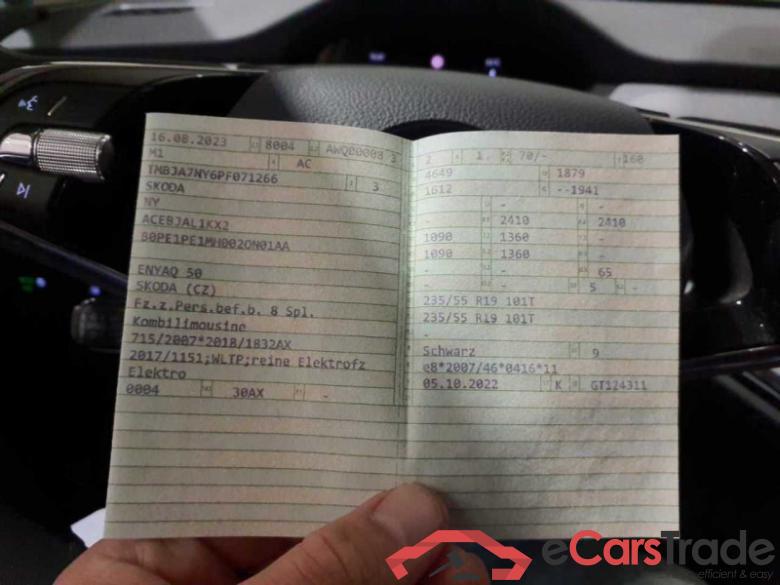 16.08.2023 8004 AWQ00008 3
M1 AC
TMBJA7NY6PF071266 3
SKODA
NY
ACEBJAL1KX2
B0PE1PE1MH002ON01AA
ENYAQ 50
SKODA (CZ)
Fz.z.Pers.bef.b. 8 Spl.
Kombilimousine
715/2007*2018/1832AX
2017/1151;WLTP;reine Elektrofz
Elektro
0004 30AX -
2 1. 70/- 160
4649 1879
1612 --1941
- -
- 2410 2410
1090 1360 -
1090 1360 -
- - 65
- - 5 -
235/55 R19 101T
235/55 R19 101T
-
Schwarz 9
e8*2007/46*0416*11
05.10.2022 K GT124311
eCarsTrade
efficient & easy